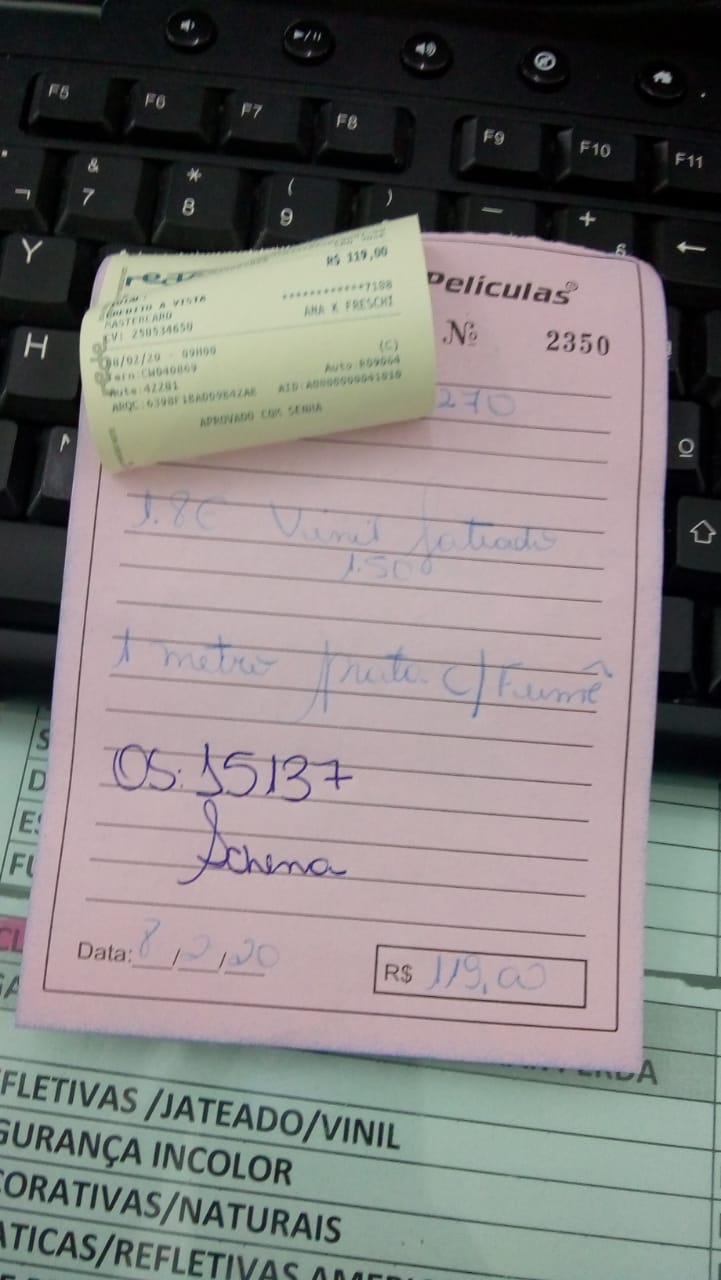 F5 F6 F7 F8 F9 F10 F11
& 7 * 8 ( 9 ) — +
Y
H
O
rede
R$ 119,00
CREDITO A VISTA
MASTERCARD
************7188
ANA K FRESCHI
CV: 250534650
08/02/20 - 09H00
(C)
Term:CW040869
Auto:R09064
Aute:42281
AID:A0000000041010
APROVADO COM SENHA
Películas
Nº 2350
270
Vinil Jateado
1.50
1 metro prata c/ Fumê
OS: 15137
Schena
Data: 8/2/20
R$ 119,00
FLETIVAS /JATEADO/VINIL
GURANÇA INCOLOR
CORATIVAS/NATURAIS
ATICAS/REFLETIVAS